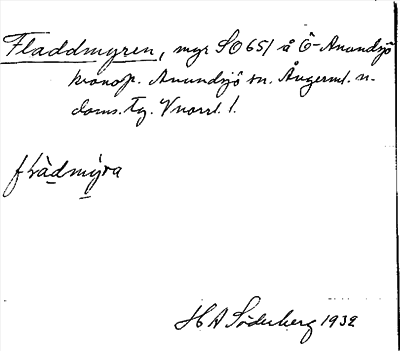 Fladdmyren, myr SO 651 å Ö-Anundsjö
kronop. Anundsjö sn. Ångerml. n.
doms. Tg. Vnorrl. l.
flàdmýra
H A Söderberg 1932